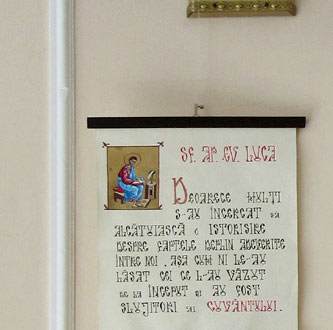 SF. AP. EV. LUCA
DEOARECE MULȚI
S-AU ÎNCERCAT SĂ
ALCĂTUIASCĂ O ISTORISIRE
DESPRE FAPTELE DEPLIN ADEVERITE
ÎNTRE NOI, AȘA CUM NI LE-AU
LĂSAT CEI CE L-AU VĂZUT
DE LA ÎNCEPUT ȘI AU FOST
SLUJITORI AI CUVÂNTULUI.